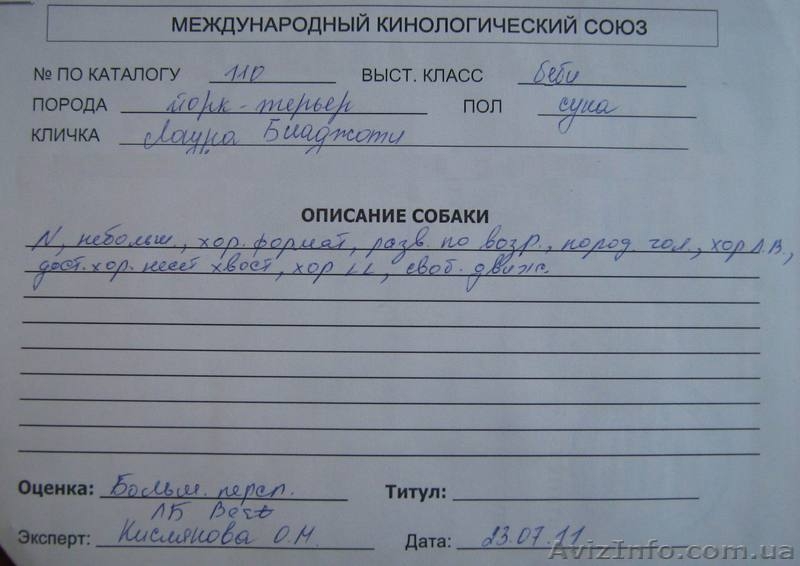 МЕЖДУНАРОДНЫЙ КИНОЛОГИЧЕСКИЙ СОЮЗ
№ ПО КАТАЛОГУ 110 ВЫСТ. КЛАСС беби
ПОРОДА йорк-терьер ПОЛ сука
КЛИЧКА Лаура Биаджоти
ОПИСАНИЕ СОБАКИ
N, небольш., хор. формат, разв. по возр., пород. гол., хор Л.В.,
дост. хор. несет хвост, хор LL, своб. движ.
Оценка: Больш. персп. Титул:
ЛБ Best
Эксперт: Кислякова О.Н. Дата: 23.07.11
AvizInfo.com.ua